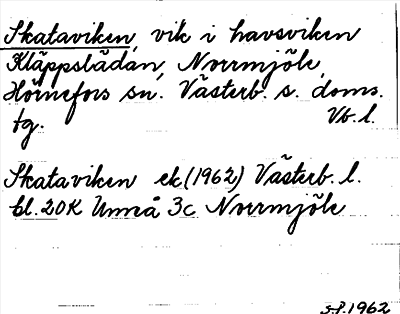 Skataviken, vik i havsviken
Kläppslädan, Norrmjöle,
Hörnefors sn. Västerb. s. doms.
tg. Vb. l.
Skataviken ek (1962) Västerb. l.
bl. 20K Umeå 3c Norrmjöle
s.f. 1962